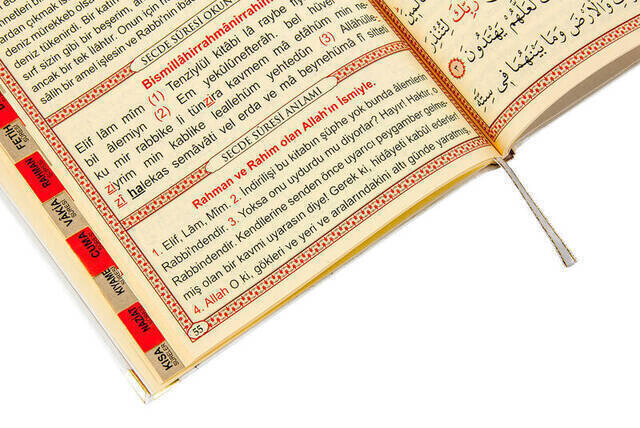 deniz mürekkep olsa
deniz tükenirdi. Bir katla
sırf sizin gibi bir beşerim, an
ancak bir tek ilâhtır. Onun için h
sâlih bir amel işlesin ve Rabbi'ni iba
SECDE SÛRESİ OKUN
Bismillâhirrahmânirrahîm
Elif lâm mîm (1) Tenzîylül kitâbi lâ raybe
bil âlemiyn (2) Em yekûlûnefterâh. bel hüvel
ku mir rabbike li tünzira kavmem mâ etâhüm min ne
ziyrim min kablike leallehüm yehtedûn (3) Allâhülle-
zî halekas semâvâti vel erda ve mâ beynehümâ fî sitteti
SECDE SÛRESİ ANLAMI
Rahman ve Rahim olan Allah'ın İsmiyle.
1. Elif, Lâm, Mîm. 2. İndirilişi bu kitabın şüphe yok bunda âlemlerin
Rabbi'ndendir. 3. Yoksa onu uydurdu mu diyorlar? Hayır! Haktır o,
Rabbindendir. Kendilerine senden önce uyarıcı peygamber gelme-
miş olan bir kavmi uyarasın diye! Gerek ki, hidâyeti kabûl ederler!
4. Allah O ki, gökleri ve yeri ve aralarındakini altı günde yaratmış,
55
FETİH
RAHMAN
VAKİA
CUMA
KIYAME
NAZİAT
KISA
SURELER
رَبِّكَ لِتُنْذِرَ
لَعَلَّهُمْ يَهْتَدُونَ
وَالْاَرْضَ وَمَا بَيْنَهُمَا فِي سِتَّةِ